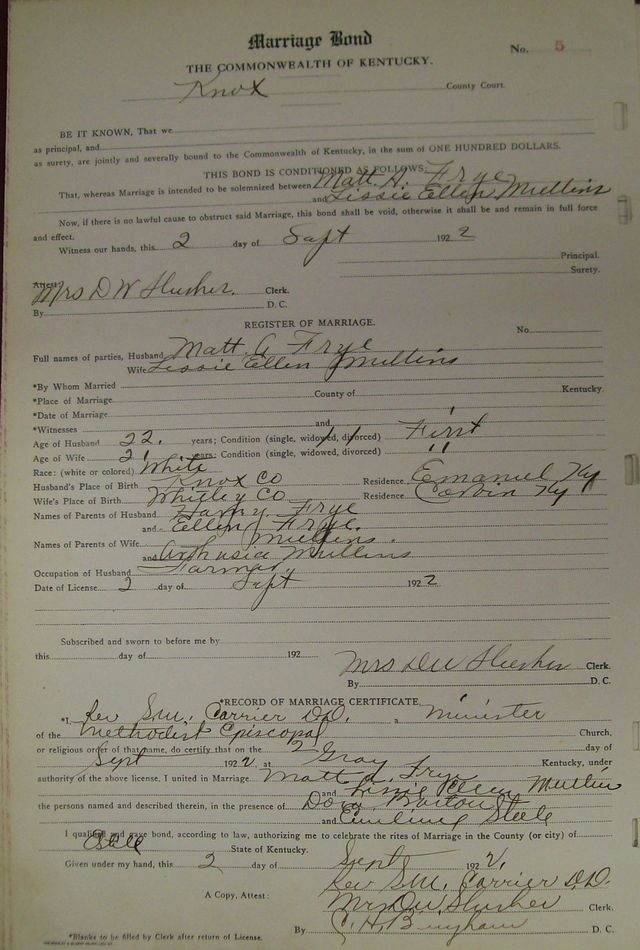 Marriage Bond
No. 5
THE COMMONWEALTH OF KENTUCKY.
Knox County Court.
BE IT KNOWN, That we
as principal, and
as surety, are jointly and severally bound to the Commonwealth of Kentucky, in the sum of ONE HUNDRED DOLLARS.
THIS BOND IS CONDITIONED AS FOLLOWS:
That, whereas Marriage is intended to be solemnized between Matt. A. Frye
and Lissie Ellen Mullins
Now, if there is no lawful cause to obstruct said Marriage, this bond shall be void, otherwise it shall be and remain in full force
and effect.
Witness our hands, this 2 day of Sept 1922
Principal.
Surety.
Attest:
Mrs D W Slusher. Clerk.
By D. C.
REGISTER OF MARRIAGE.
No.
Full names of parties, Husband Matt A Frye
Wife Lissie Ellen Mullins
*By Whom Married
*Place of Marriage County of Kentucky.
*Date of Marriage
*Witnesses and
Age of Husband 22. years; Condition (single, widowed, divorced) First
Age of Wife 21 years; Condition (single, widowed, divorced) "
Race: (white or colored) White
Husband's Place of Birth Knox Co Residence Emanuel Ky
Wife's Place of Birth Whitley Co Residence Corbin Ky
Names of Parents of Husband Harvy Frye
and Ellen Frye.
Names of Parents of Wife Mullins.
and Mullins
Occupation of Husband Farmar.
Date of License 2 day of Sept 1922
Subscribed and sworn to before me by
this day of 192
Mrs D W Slusher Clerk.
By D. C.
*RECORD OF MARRIAGE CERTIFICATE
*I, Rev S.M. Carrier D.D. a Minister
of the Methodist Episcopal Church,
or religious order of that name, do certify that on the 2 day of
Sept 1922, at Gray Kentucky, under
authority of the above license, I united in Marriage Matt A. Frye
and Lissie Ellen Mullin
the persons named and described therein, in the presence of Dora Barton
and Steele
I qualified and gave bond, according to law, authorizing me to celebrate the rites of Marriage in the County (or city) of
Bell State of Kentucky.
Given under my hand, this 2 day of Sept 1922,
Rev S.M. Carrier D.D.
A Copy, Attest: Mrs D W Slusher Clerk.
By C. H. Bingham D. C.
*Blanks to be filled by Clerk after return of License.